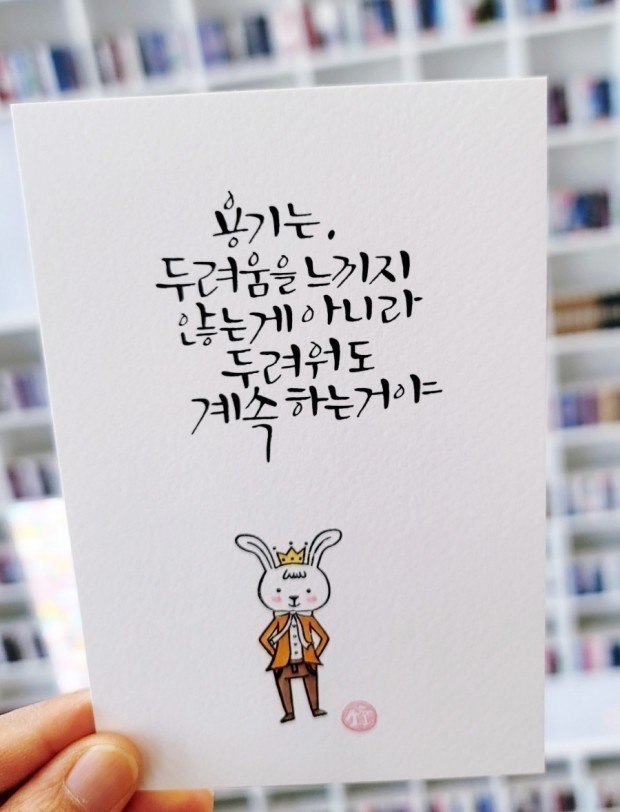 용기는,
두려움을 느끼지
않는게 아니라
두려워도
계속 하는거야